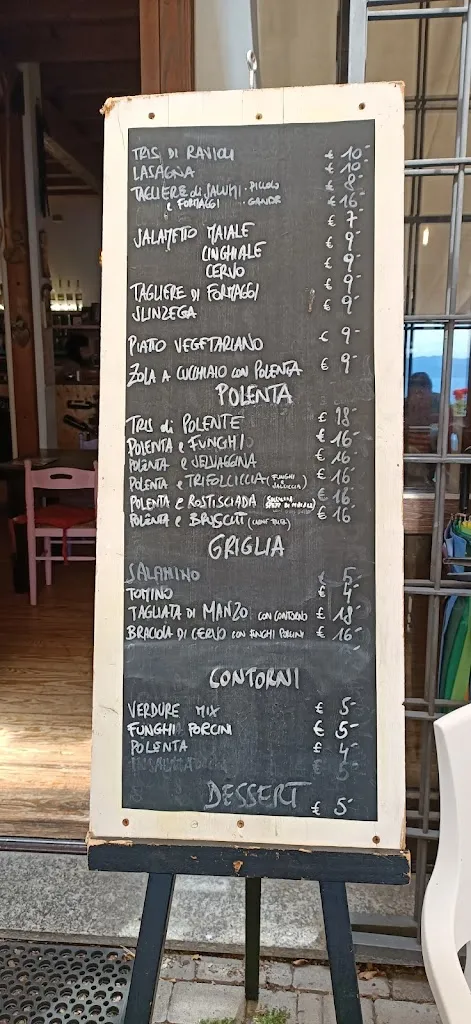 TRIS DI RAVIOLI € 10-
LASAGNA € 10-
TAGLIERE di SALUMI · PICCOLO € 8-
e FORMAGGI · GRANDE € 16-
SALAMETTO MAIALE € 7
CINGHIALE € 9-
CERVO € 9-
TAGLIERE DI FORMAGGI € 9-
SLINZEGA € 9-
PIATTO VEGETARIANO € 9-
ZOLA A CUCCHIAIO CON POLENTA € 9-
POLENTA
TRIS di POLENTE € 18-
POLENTA e FUNGHI € 16-
POLENTA e SELVAGGINA € 16-
POLENTA e TRIFOLCICCIA (FUNGHI SALCICCIA) € 16-
POLENTA e ROSTISCIADA € 16-
POLENTA e BRUSCITT € 16-
GRIGLIA
SALAMINO € 5-
TOMINO € 4-
TAGLIATA DI MANZO CON CONTORNO € 18-
BRACIOLA DI CERVO CON FUNGHI PORCINI € 16-
CONTORNI
VERDURE MIX € 5-
FUNGHI PORCINI € 5-
POLENTA € 4-
INSALATA € 5-
DESSERT € 5-